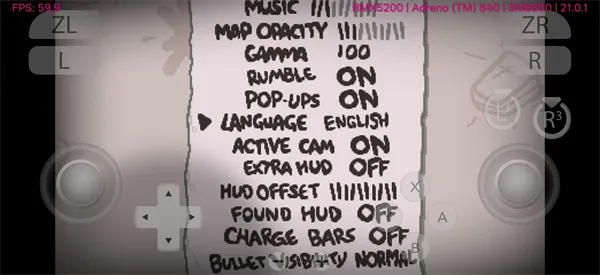 FPS: 59.9
RMX5200 | Adreno (TM) 840 | SM8850 | 21.0.1
ZL
ZR
L
R
MUSIC
MAP OPACITY
GAMMA 100
RUMBLE ON
POP-UPS ON
LANGUAGE ENGLISH
ACTIVE CAM ON
EXTRA HUD OFF
HUD OFFSET
FOUND HUD OFF
CHARGE BARS OFF
BULLET VISIBILITY NORMAL
R3
X
A
B